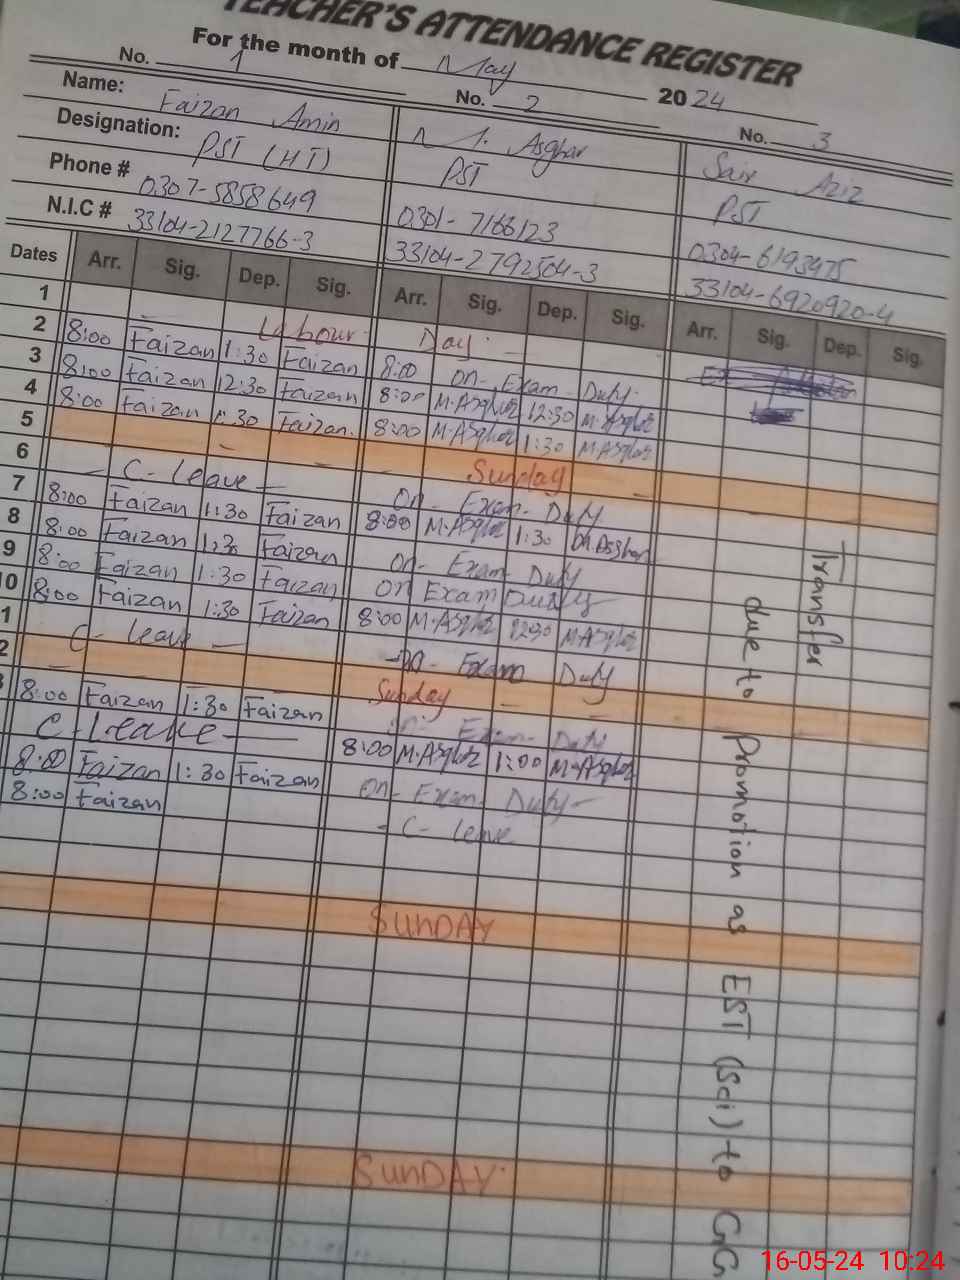 TEACHER'S ATTENDANCE REGISTER
For the month of May 2024
No. 1 No. 2 No. 3
Name: Faizan Amin M. Asghar Sair Aziz
Designation: PST (HT) PST PST
Phone # 0307-5858649 0301-7166123 0304-6193475
N.I.C # 33104-2127766-3 33104-2792504-3 33104-6920920-4
Dates Arr. Sig. Dep. Sig. Arr. Sig. Dep. Sig. Arr. Sig. Dep. Sig.
1 Labour Day
2 8:00 Faizan 1:30 Faizan 8:00 On- Exam- Duty-
3 8:00 Faizan 12:30 Faizan 8:00 M.Asghar 12:30 M.Asghar
4 8:00 Faizan 1:30 Faizan. 8:00 M.Asghar 1:30 M.Asghar
5 Sunday
6 - C- leave - On- Exam- Duty
7 8:00 Faizan 1:30 Faizan 8:00 M.Asghar 1:30 M.Asghar
8 8:00 Faizan 1:30 Faizan On- Exam- Duty
9 8:00 Faizan 1:30 Faizan On Exam Duty
10 8:00 Faizan 1:30 Faizan 8:00 M.Asghar 12:30 M.Asghar
1 C- leave - On- Exam Duty
2 Sunday
8:00 Faizan 1:30 Faizan On- Exam- Duty
C- leave 8:00 M.Asghar 1:00 M.Asghar
8:00 Faizan 1:30 Faizan On- Exam- Duty-
8:00 Faizan - C- leave
SUNDAY
SUNDAY
Transfer
due to Promotion as EST (Sci) to
16-05-24 10:24